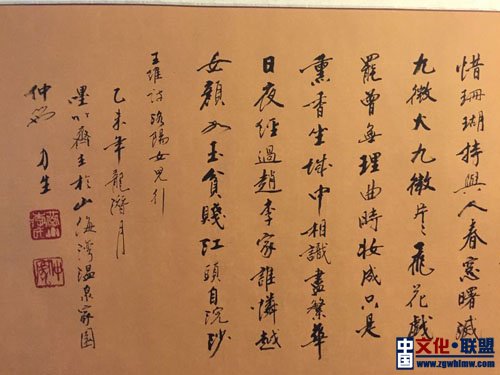 惜珊瑚持與人春窻曙滅
九微火九微片〻飛花戲
罷曾無理曲時妝成只是
熏香坐城中相識盡繁華
日夜經過趙李家誰憐越
女顔如玉貧賤江頭自浣紗
王維詩洛陽女兒引
乙未年龍潛月
墨齋主於山海灣温泉家園
仲 力生
中国文化·联盟
www.zgwhlmw.com